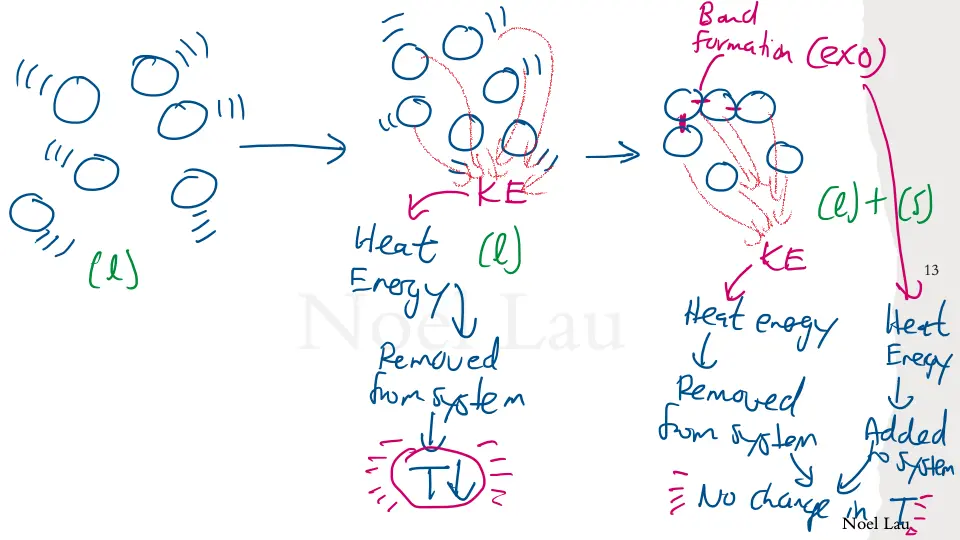 (l)
KE
Heat
Energy
(l)
Removed
from system
T↓
Bond
formation (exo)
(l) + (s)
KE
13
Heat energy
Removed
from system
Heat
Energy
Added
to system
No change in T
Noel Lau
Noel Lau